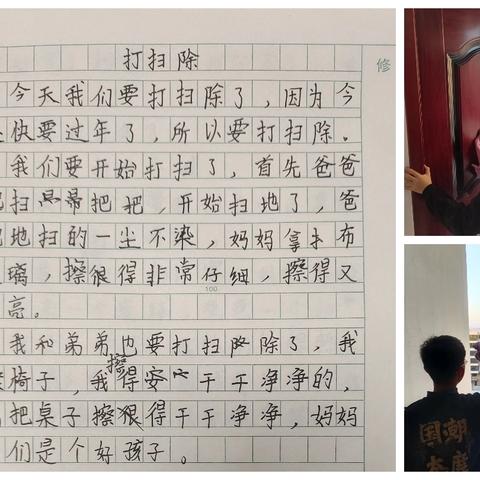 打扫除
今天我们要打扫除了，因为今
快要过年了，所以要打扫除．
我们要开始打扫了，首先爸爸
扫把把，开始扫地了，爸
地扫的一尘不染，妈妈拿布
璃，擦很得非常仔细，擦得又
亮。
100
我和弟弟也要打扫除了，我
椅子，我擦得干干净净的，
把桌子擦狠得干干净净，妈妈
们是个好孩子。
修
国潮